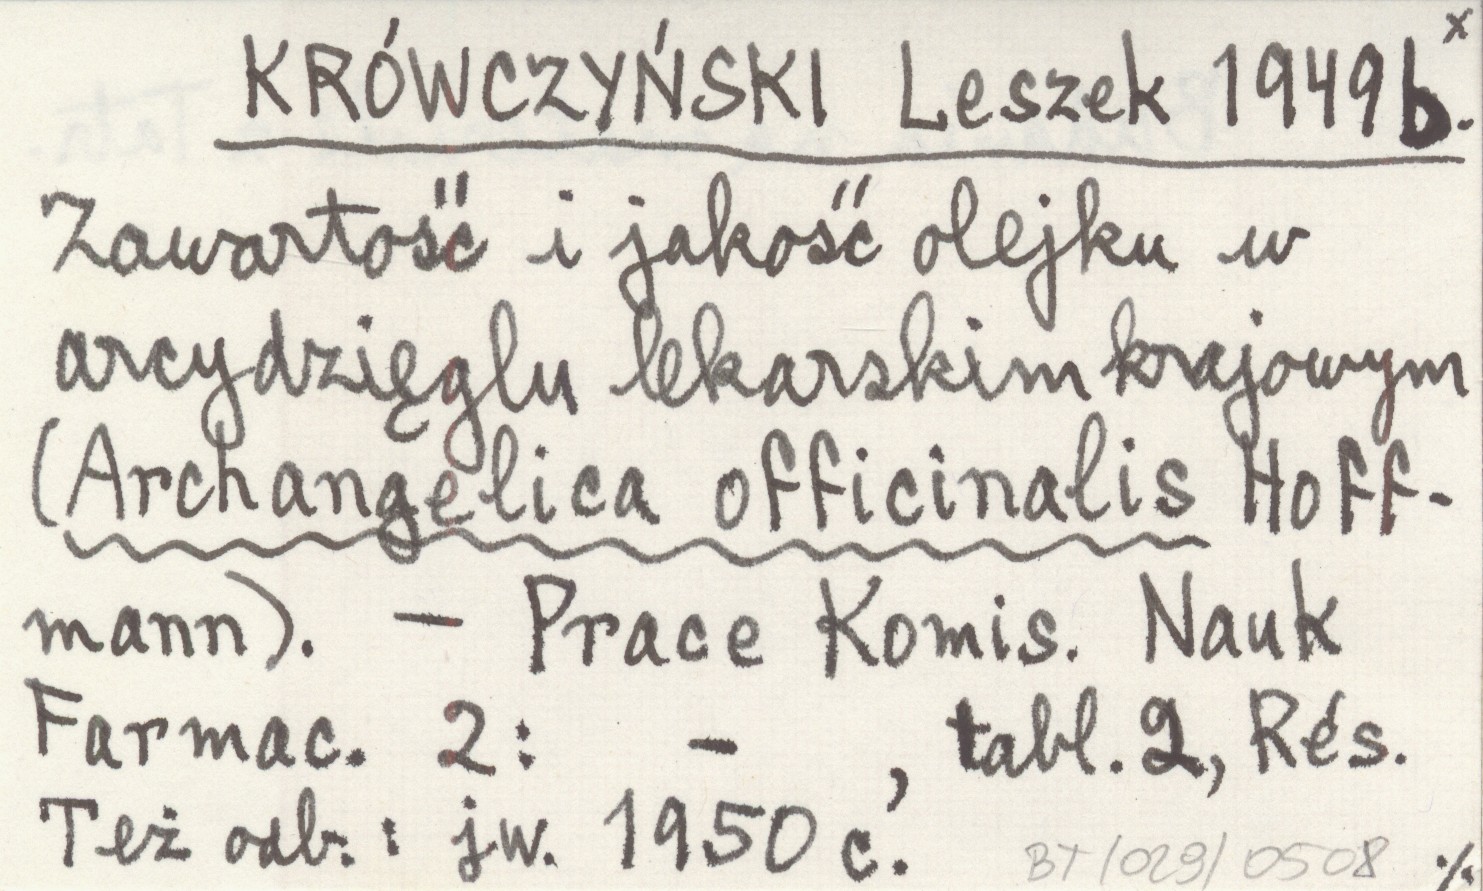 KRÓWCZYŃSKI Leszek 1949b.x
Zawartość i jakość olejku w
arcydzięglu lekarskim krajowym
(Archangelica officinalis Hoff-
mann). – Prace Komis. Nauk
Farmac. 2: – , tabl. 2, Rés.
Też odb.: jw. 1950 c.
BT/029/0508 ./.